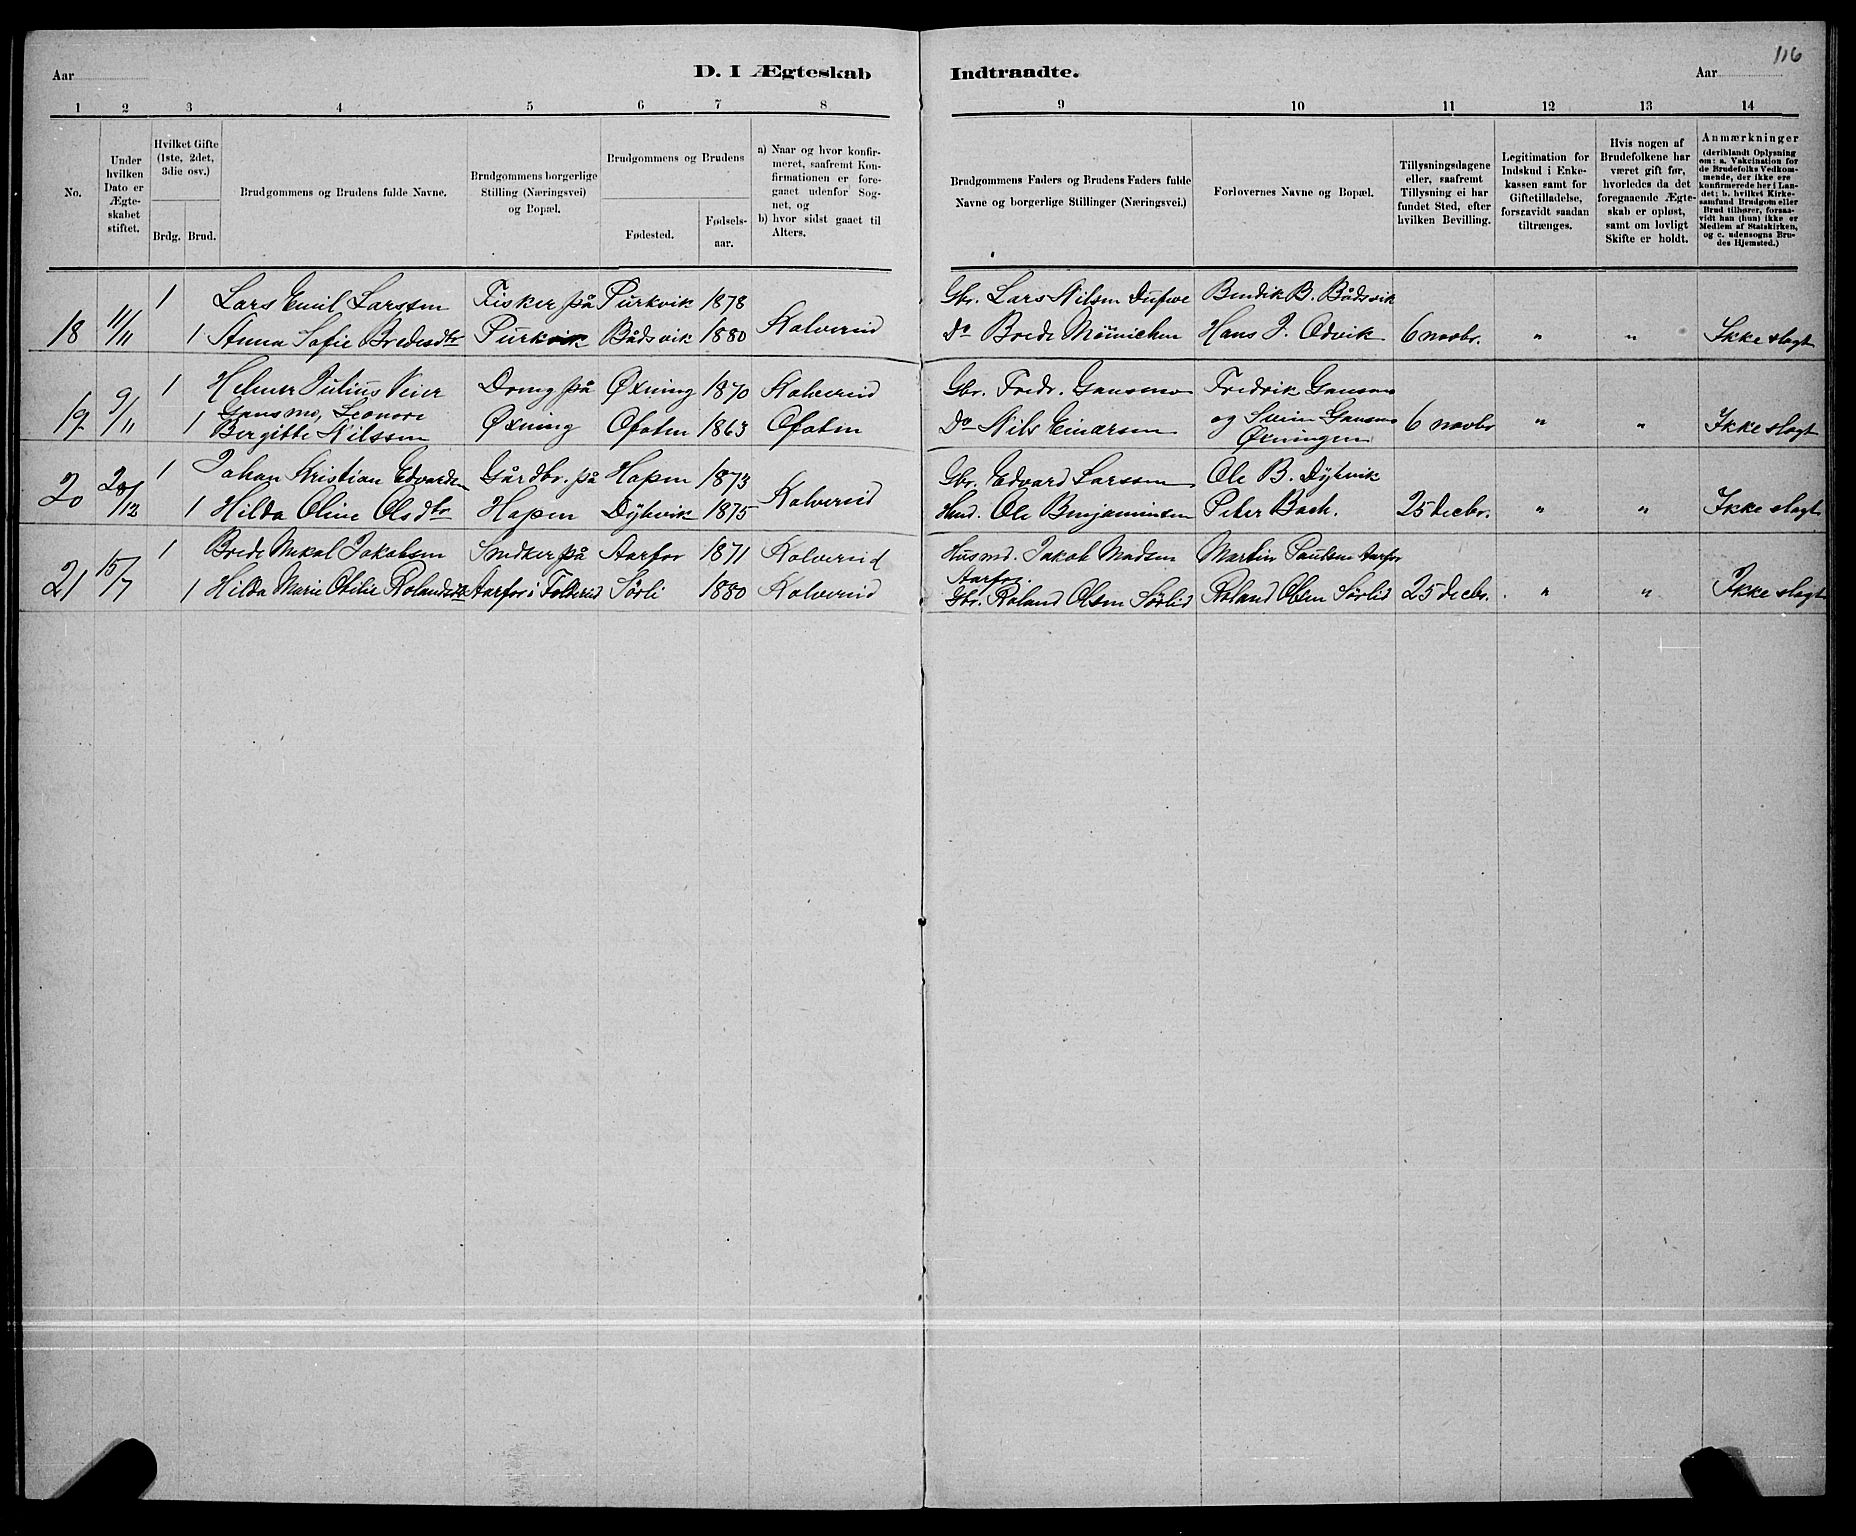 116
Aar D. I Ægteskab Indtraadte. Aar
1 2 3 4 5 6 7 8 9 10 11 12 13 14
No.
Under hvilken Dato er Ægte-
skabet stiftet.
Hvilket Gifte
(1ste, 2det,
3die osv.)
Brdg. Brud.
Brudgommens og Brudens fulde Navne.
Brudgommens borgerlige
Stilling (Næringsvei)
og Bopæl.
Brudgommens og Brudens
Fødested.
Fødsels-
aar.
a) Naar og hvor konfir-
meret, saafremt Kon-
firmationen er fore-
gaaet udenfor Sog-
net, og
b) hvor sidst gaaet til
Alters.
Brudgommens Faders og Brudens Faders fulde
Navne og borgerlige Stillinger (Næringsvei.)
Forlovernes Navne og Bopæl.
Tillysningsdagene
eller, saafremt
Tillysning ei har
fundet Sted, efter
hvilken Bevilling.
Legitimation for
Indskud i Enke-
kassen samt for
Giftetilladelse,
forsaavidt saadan
tiltrænges.
Hvis nogen af
Brudefolkene har
været gift før,
hvorledes da det
foregaaende Ægte-
skab er opløst,
samt om lovligt
Skifte er holdt.
Anmærkninger
(deriblandt Oplysning
om: a. Vakcination for
de Brudefolks Vedkom-
mende, der ikke ere
konfirmerede her i Lan-
det; b. hvilket Kirke-
samfund Brudgom eller
Brud tilhører, forsaa-
vidt han (hun) ikke er
Medlem af Statskirken,
og c. udensogns Bru-
des Hjemsted.)
1 Lars Emil Larssen Fisker på Purkvik 1878 Gbr. Lars Nilsen Bendik B. Bådsvik
18 11/11 1 Anna Sofie Bredesdtr Purkvik Bådsvik 1880 Kolvereid Do Brede Mönnichen Hans J. Odvik 6 novbr. " " Ikke slagt
1 Helmer Julius Meier Dreng på Øxning 1870 Kolvereid Gbr. Fredr. Gansmo Fredrik Gansmo
19 9/11 1 Gansmo, Leonore Øxning Ofoten 1863 Ofoten Do Nils Einarsen og Gansmo 6 novbr " " Ikke slagt
Bergitte Nilssen Øxningen
1 Johan Kristian Edvardsen Gårdbr. på Hopen 1873 Gbr. Edvard Larssen Ole B. Dybvik
20 28/12 1 Hilda Oline Olsdtr Hopen Dybvik 1875 Kolvereid Husmd. Ole Benjaminsen Peter Bach. 25 decbr. " " Ikke slagt
1 Brede Mikal Jakobsen Snedker på Aarfor 1871 Kolvereid Husmd. Jakob Madsen Martin Paulsen Aarfor
Aarfor.
21 15/7 1 Hilda Marie Otilie Rolandsdtr Aarfor i Foldereid Sörli 1880 Kolvereid Gbr. Roland Olsen Sörlid Roland Olsen Sörlid 25 decbr. " " Ikke slagt